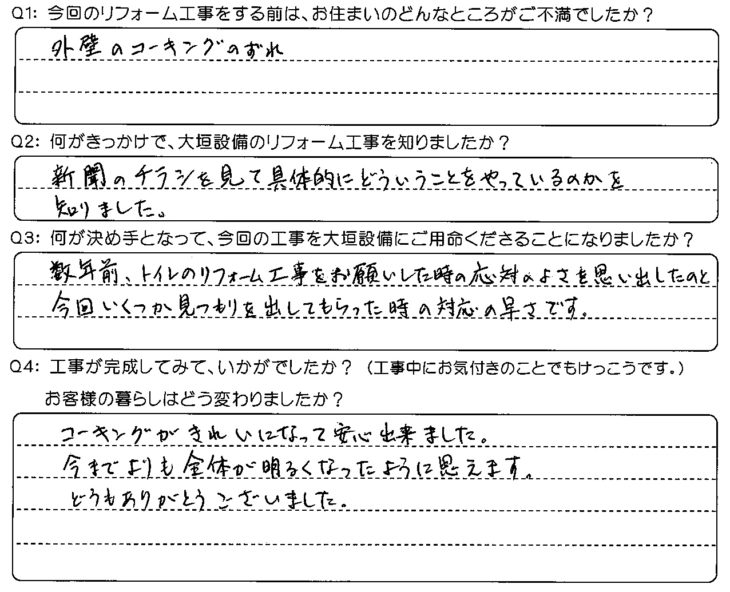 Q1: 今回のリフォーム工事をする前は、お住まいのどんなところがご不満でしたか？
外壁のコーキングのずれ
Q2: 何がきっかけで、大垣設備のリフォーム工事を知りましたか？
新聞のチラシを見て具体的にどういうことをやっているのかを
知りました。
Q3: 何が決め手となって、今回の工事を大垣設備にご用命くださることになりましたか？
数年前、トイレのリフォーム工事をお願いした時の応対のよさを思い出したのと
今回いくつか見つもりを出してもらった時の対応の早さです。
Q4: 工事が完成してみて、いかがでしたか？（工事中にお気付きのことでもけっこうです。）
お客様の暮らしはどう変わりましたか？
コーキングがきれいになって安心出来ました。
今までよりも全体が明るくなったように思えます。
どうもありがとうございました。